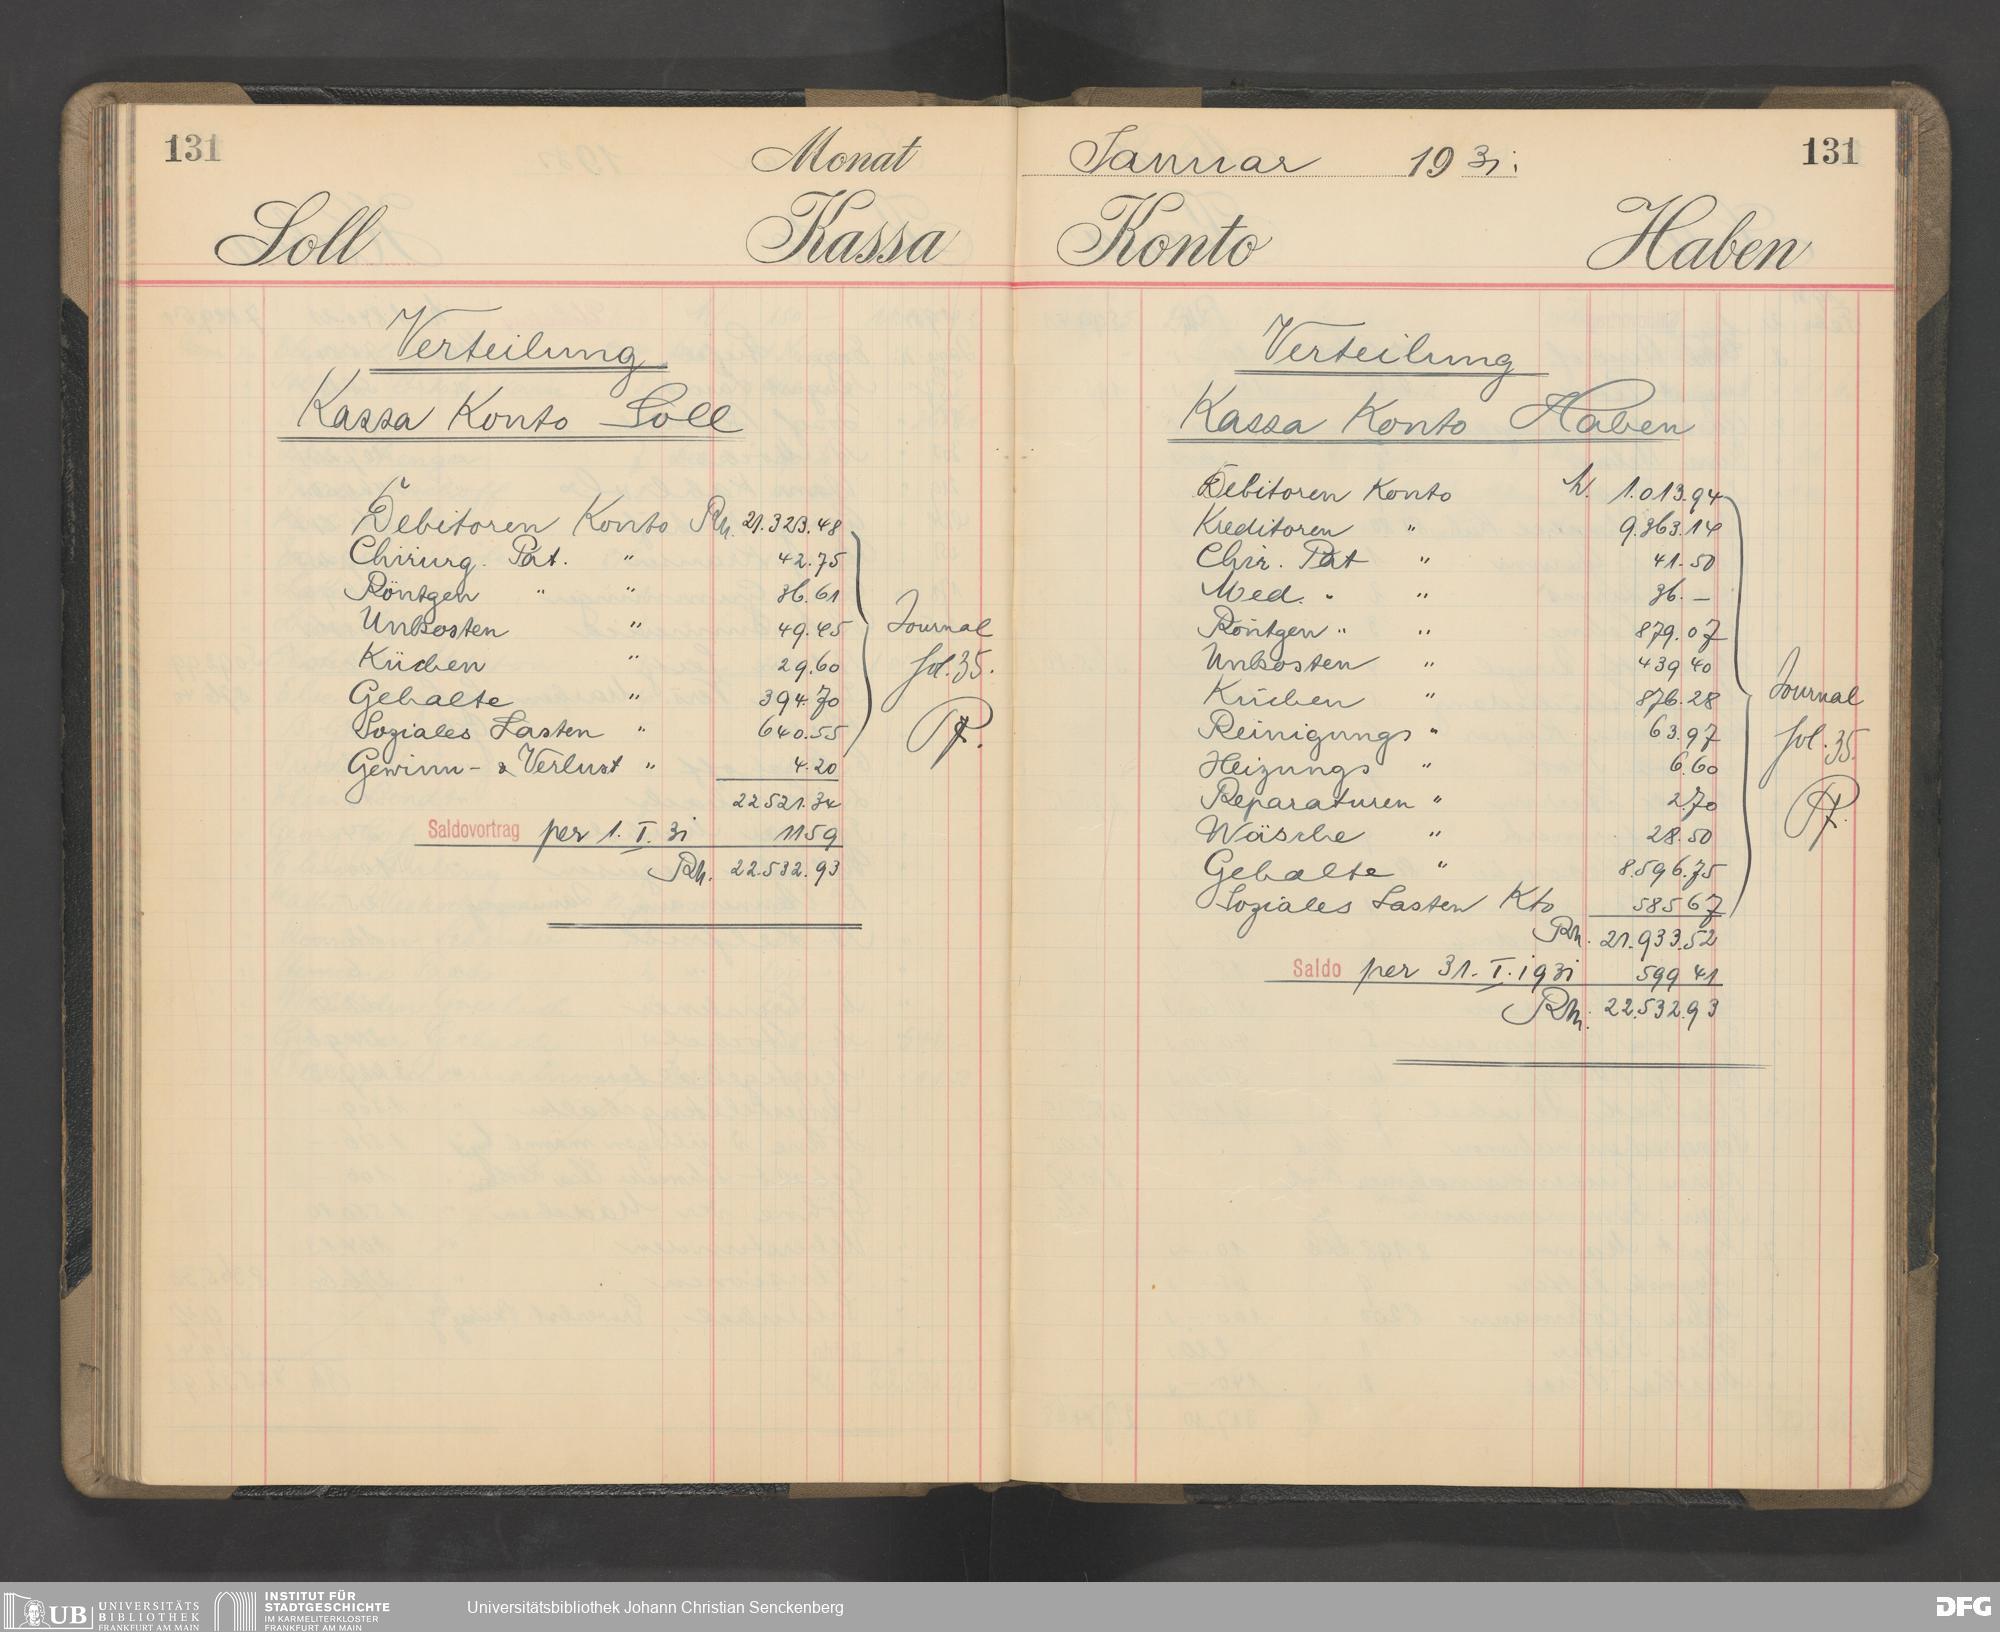 131
Monat
Soll Kassa
Verteilung
Kassa Konto Soll
Debitoren Konto Rm. 21.323.48
Chirurg. Pat. " 42.75
Röntgen " " 36.61
Unkosten " 49.45
Küchen " 29.60
Gehalte " 394.70
Soziales Lasten " 640.55
Gewinn- & Verlust " 4.20
Journal
fol. 35.
22521.34
Saldovortrag per 1. I. 31 1159
Rm. 22.532.93
Januar 1931.
131
Konto Haben
Verteilung
Kassa Konto Haben
Debitoren Konto M. 1.013.94
Kreditoren " 9.363.14
Chir. Pat " 41.50
Med. " " 36.—
Röntgen " " 879.07
Unkosten " 439 40
Küchen " 876.28
Reinigungs " 63.97
Heizungs " 6.60
Reparaturen " 2.70
Wäsche " 28.50
Gehalte " 8.596.75
Soziales Lasten Kto 585 67
Journal
fol. 35.
Rm. 21.933.52
Saldo per 31. I. 1931 599 41
Rm. 22.532.93
UB UNIVERSITÄTS
BIBLIOTHEK
FRANKFURT AM MAIN
INSTITUT FÜR
STADTGESCHICHTE
IM KARMELITERKLOSTER
FRANKFURT AM MAIN
Universitätsbibliothek Johann Christian Senckenberg
DFG